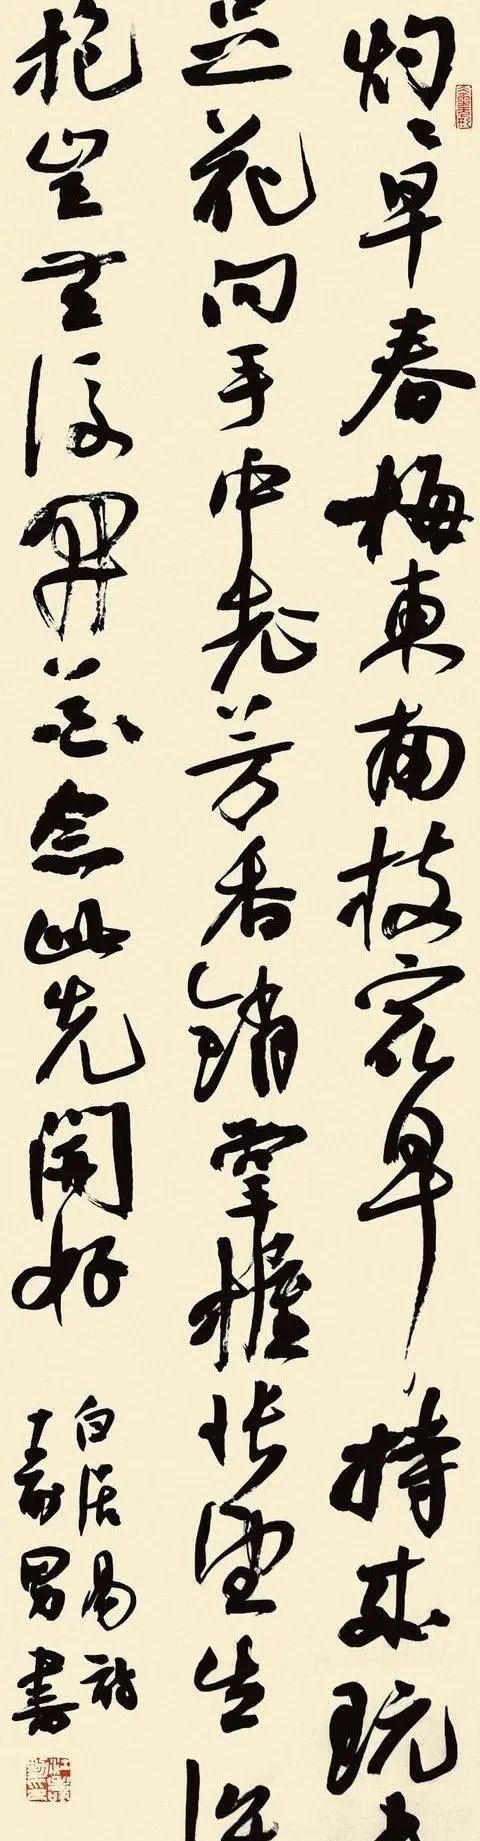 灼灼早春梅東南枝最早持来玩未
足花向手中老芳香銷掌握悵望生懷
抱豈無後開花念此先開好
白居易詩
男書